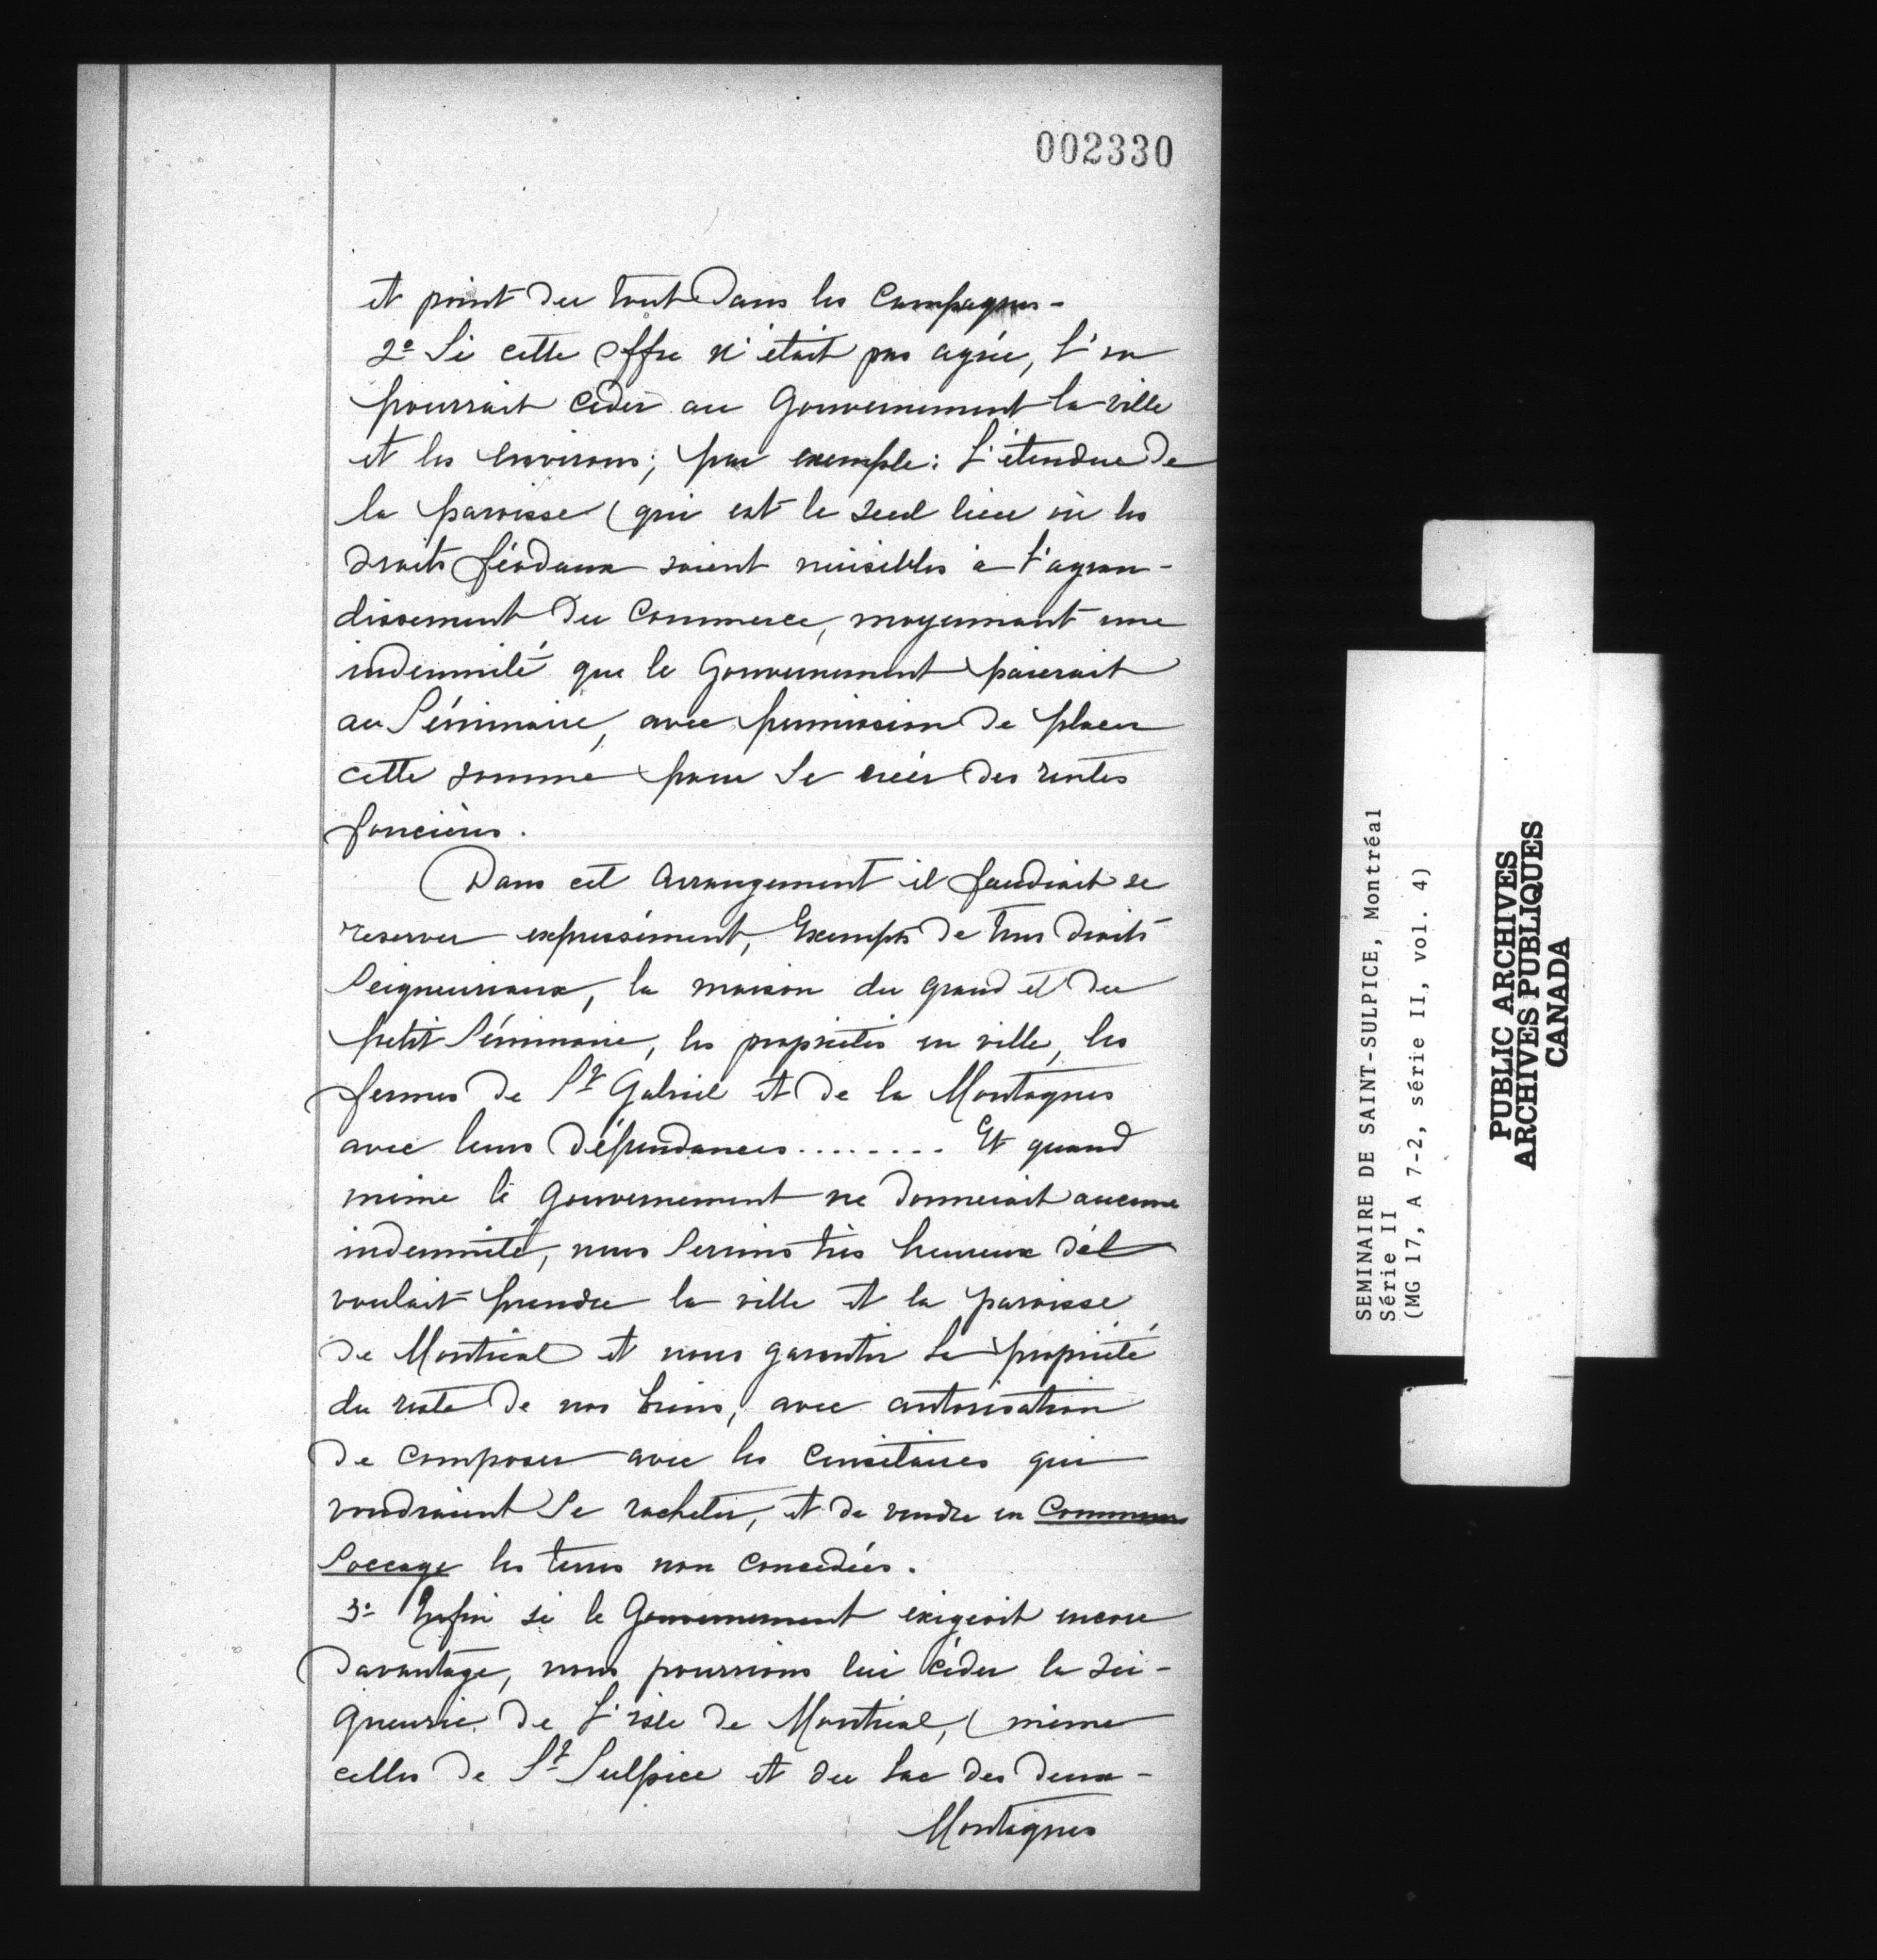 002330
et point du tout dans les Campagnes -
2º Si cette offre n'était pas agrée, l'on
pourrait céder au Gouvernement la ville
et les environs; par exemple: l'étendue de
la paroisse (qui est le seul lieu où les
droits féodaux soient nuisibles à l'agran-
dissement du Commerce, moyennant une
indemnité que le Gouvernement paierait
au Séminaire, avec permission de placer
cette somme pour se créer des rentes
foncières.
Dans cet arrangement il faudrait se
reserver expressément, Exempts de tous droits
Seigneuriaux, la maison du grand et du
petit Séminaire, les propriétés en ville, les
fermes de St Gabriel et de la Montagnes
avec leurs dépendances........ Et quand
même le Gouvernement ne donnerait aucune
indemnité, nous serions très heureux s'il
voulait prendre la ville et la paroisse
de Montréal et nous garantir la propriété
du reste de nos biens, avec autorisation
de composer avec les Censitaires qui
voudraient se racheter, et de vendre en Commun
Soccage les terres non concédées.
3º Enfin si le Gouvernement exigeait encore
davantage, nous pourrions lui céder la Sei-
gneurie de l'isle de Montréal, (même
celles de St Sulpice et du Lac des deux-
Montagnes
SEMINAIRE DE SAINT-SULPICE, Montréal
Série II
(MG 17, A 7-2, série II, vol. 4)
PUBLIC ARCHIVES
ARCHIVES PUBLIQUES
CANADA